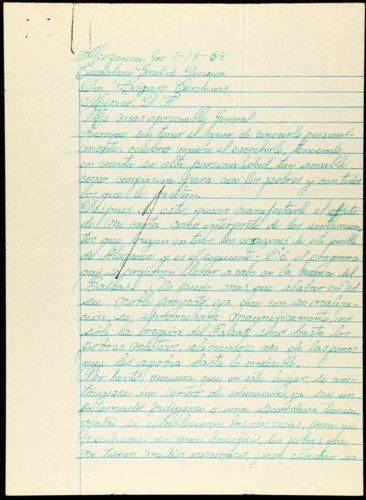 Alcozauca, Gro 1-18-64
Ciudadano Gral de División
Dn. Lázaro Cárdenas.
México, D. F.
Muy mas apreciable General.
Aunque sin tener el honor de conocerle personal-
mente, celebro mucho el escribirle, teniendo
en cuenta su alta personalidad, tan amable
como compasiva para con los pobres y con todos
los que le
Después de esto, quiero manifestarle el
de mi carta como intérprete de los sentimien-
tos que bullen en todos los corazones de este pueblo
de Alcozauca y es el siguiente: Sé el programa
que se proponen llevar a cabo en la cuenca del
Balsas. No puedo mas que alabar en Ud
su noble proyecto, ya que con su realiza-
ción, se aprovechará magníficamente, no
sólo la región del Balsas, sino hasta los
pobres mixtecos, aliviando así de las penas
que les agobia hasta lo indecible.
Por tanto, quisiera que en este lugar se cons-
truyese un centro de educación, ya sea un
internado indígena o una secundaria técnica
ojalá, se establecieran las dos cosas, para que
recibieran un gran beneficio, los pobres que
no tienen medios económicos, para estudiar en